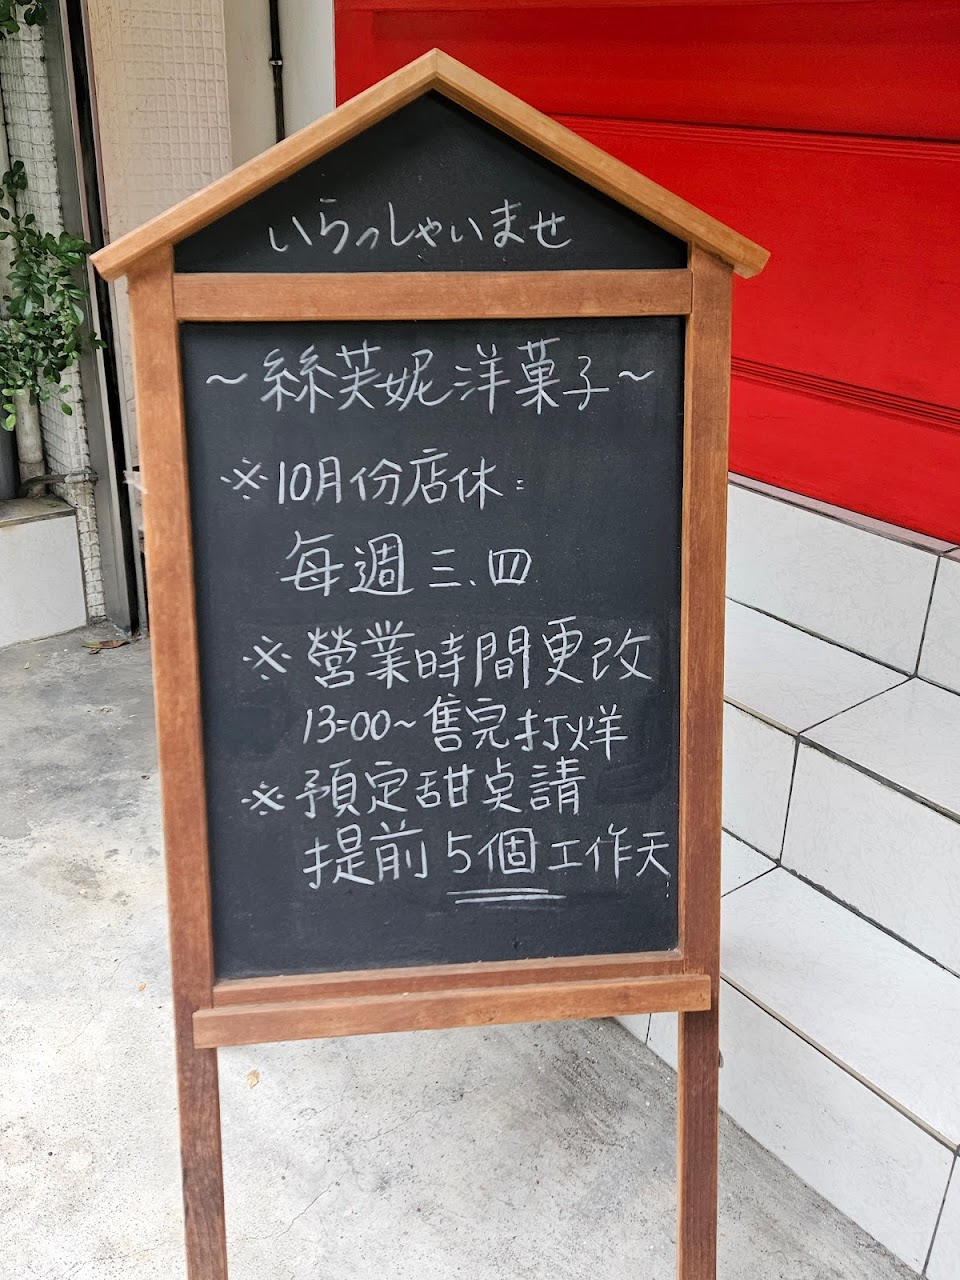 いらっしゃいませ
～絲芙妮洋菓子～
※10月份店休:
每週三、四
※營業時間更改
13:00～售完打烊
※預定甜桌請
提前5個工作天